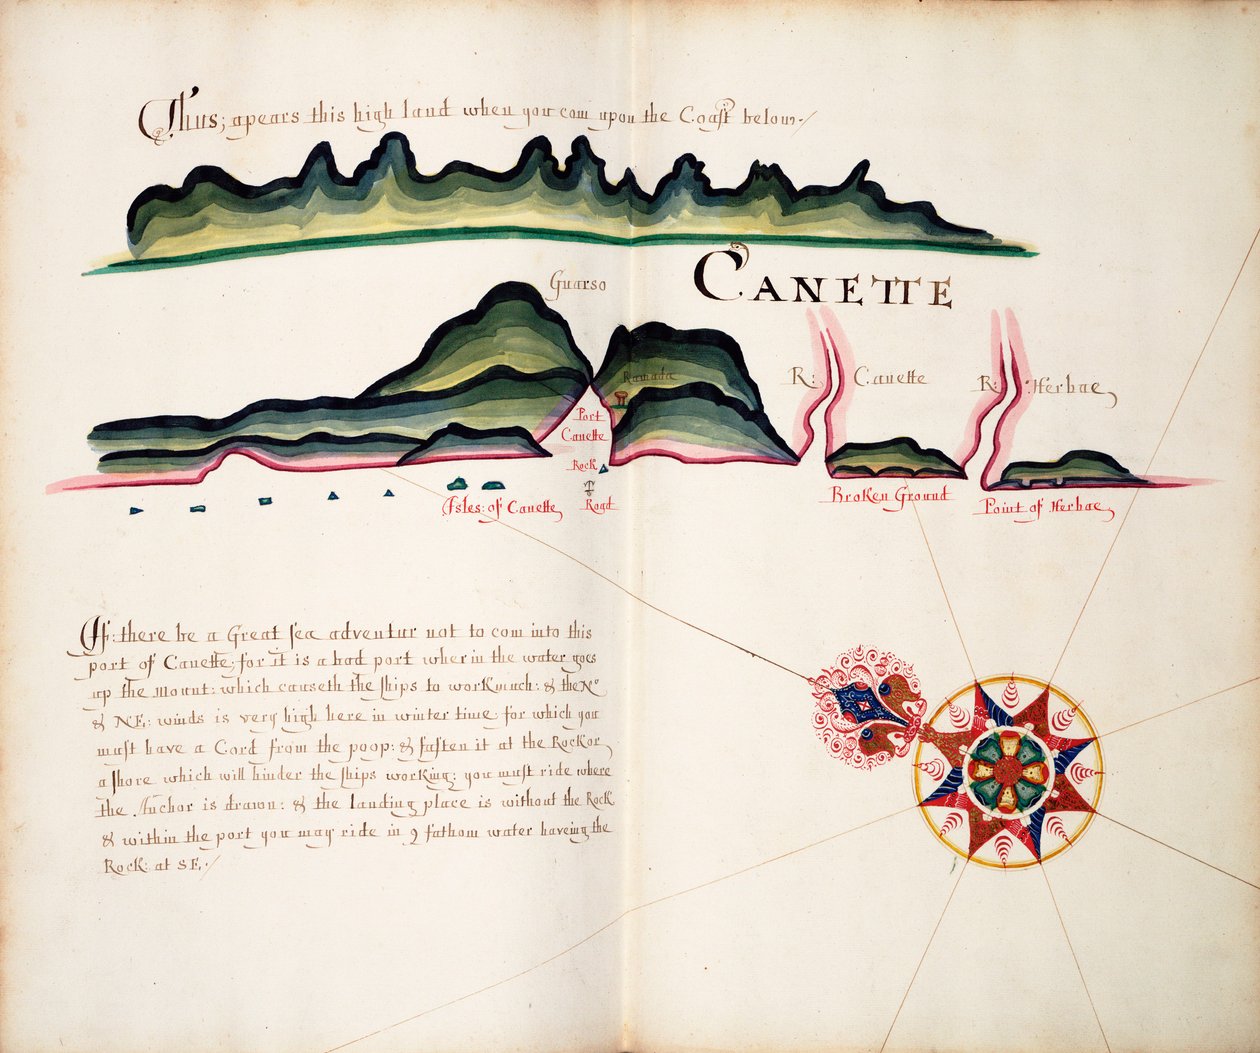 Thus; apears this high land when you com upon the Coast below
CANETTE
Guarso
Ramada
R: Canette
R: Herbae
Port
Canette
Rock
Road
Isles: of Canette
Broken Ground
Point of Herbae
If: there be a Great sea adventur not to com into this
port of Canette; for it is a bad port wherin the water goes
up the mount: which causeth the ships to work much: & the No
& NE: winds is very high here in winter time for which you
must have a Cord from the poop: & fasten it at the Rock or
a shore which will hinder the ships working: you must ride where
the Anchor is drawn: & the landing place is without the Rock
& within the port you may ride in 9 fathom water haveing the
Rock: at SE